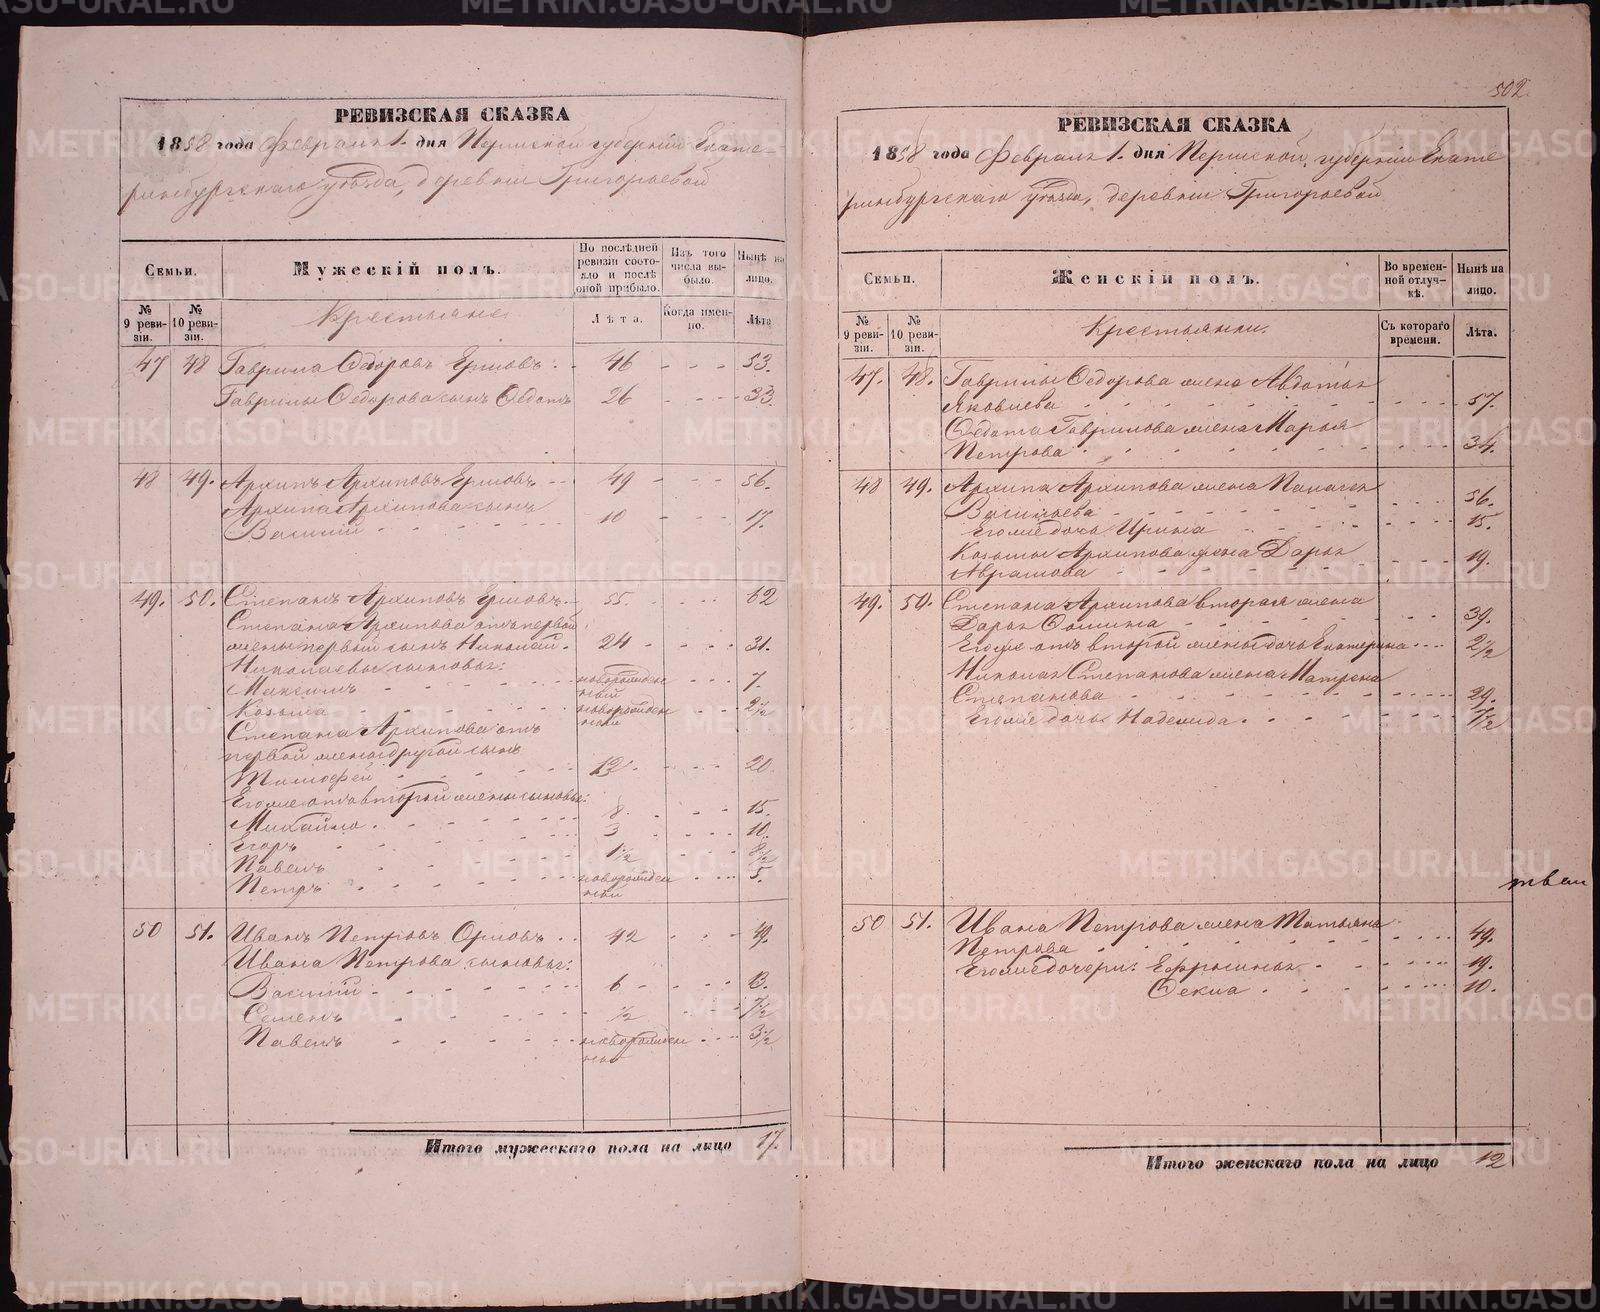 502.
РЕВИЗСКАЯ СКАЗКА
1858 года Февраля 1. дня Пермской губернiи Екате-
ринбургскаго уѣзда, деревни Григорьевой
Семьи.
Мужескiй полъ.
По послѣдней ревизiи состояло и послѣ оной прибыло.
Изъ того числа выбыло.
Нынѣ на лицо.
№ 9 ревизiи.
№ 10 ревизiи.
Крестьяне
Лѣта.
Когда именно.
Лѣта
47 48 Гаврила Ѳедоровъ Ершовъ 46 53.
Гаврилы Ѳедорова сынъ Ѳедотъ 26 33
48 49. Архипъ Архиповъ Ершовъ 49 56.
Архипа Архипова сынъ
Василiй 10 17.
49. 50. Степанъ Архиповъ Ершовъ 55. 62
Степана Архипова отъ первой
жены первый сынъ Николай. 24 31.
Николаевы сыновья:
Максимъ новорожденный 7.
Козьма новорожденный 2 1/2
Степана Архипова отъ
первой жены другой сынъ
Тимофей 13. 20.
Егоже отъ второй жены сыновья:
Михайло. 8. 15.
Егоръ 3 10.
Павелъ 1 1/2 8 1/2
Петръ новорожденный 5.
50 51. Иванъ Петровъ Ершовъ 42 49.
Ивана Петрова сыновья:
Василiй 6 13.
Семенъ 1/2 7 1/2
Павелъ новорожденный 3 1/2
Итого мужескаго пола на лицо 17.
РЕВИЗСКАЯ СКАЗКА
1858 года Февраля 1. дня Пермской губернiи Екате
ринбургскаго уѣзда, деревни Григорьевой
Семьи.
Женскiй полъ.
Во временной отлучкѣ.
Нынѣ на лицо.
№ 9 ревизiи.
№ 10 ревизiи.
Крестьянки.
Съ котораго времени.
Лѣта.
47. 48. Гаврилы Ѳедорова жена Авдотья
Яковлева 57.
Ѳедота Гаврилова жена Марья
Петрова 34.
48 49. Архипа Архипова жена Палагея
Васильева 56.
Егоже дочь Ирина 15.
Козьмы Архипова жена Дарья
Абрамова 19.
49. 50. Степана Архипова вторая жена
Дарья Ѳомина 39.
Егоже отъ второй жены дочь Екатерина 2 1/2
Николая Степанова жена Матрена
Степанова 29.
Егоже дочь Надежда 7 1/2
50 51. Ивана Петрова жена Татьяна
Петрова 49.
Егоже дочери: Ефросинья 19.
Ѳекла 10.
Итого женскаго пола на лицо 12
METRIKI.GASO-URAL.RU